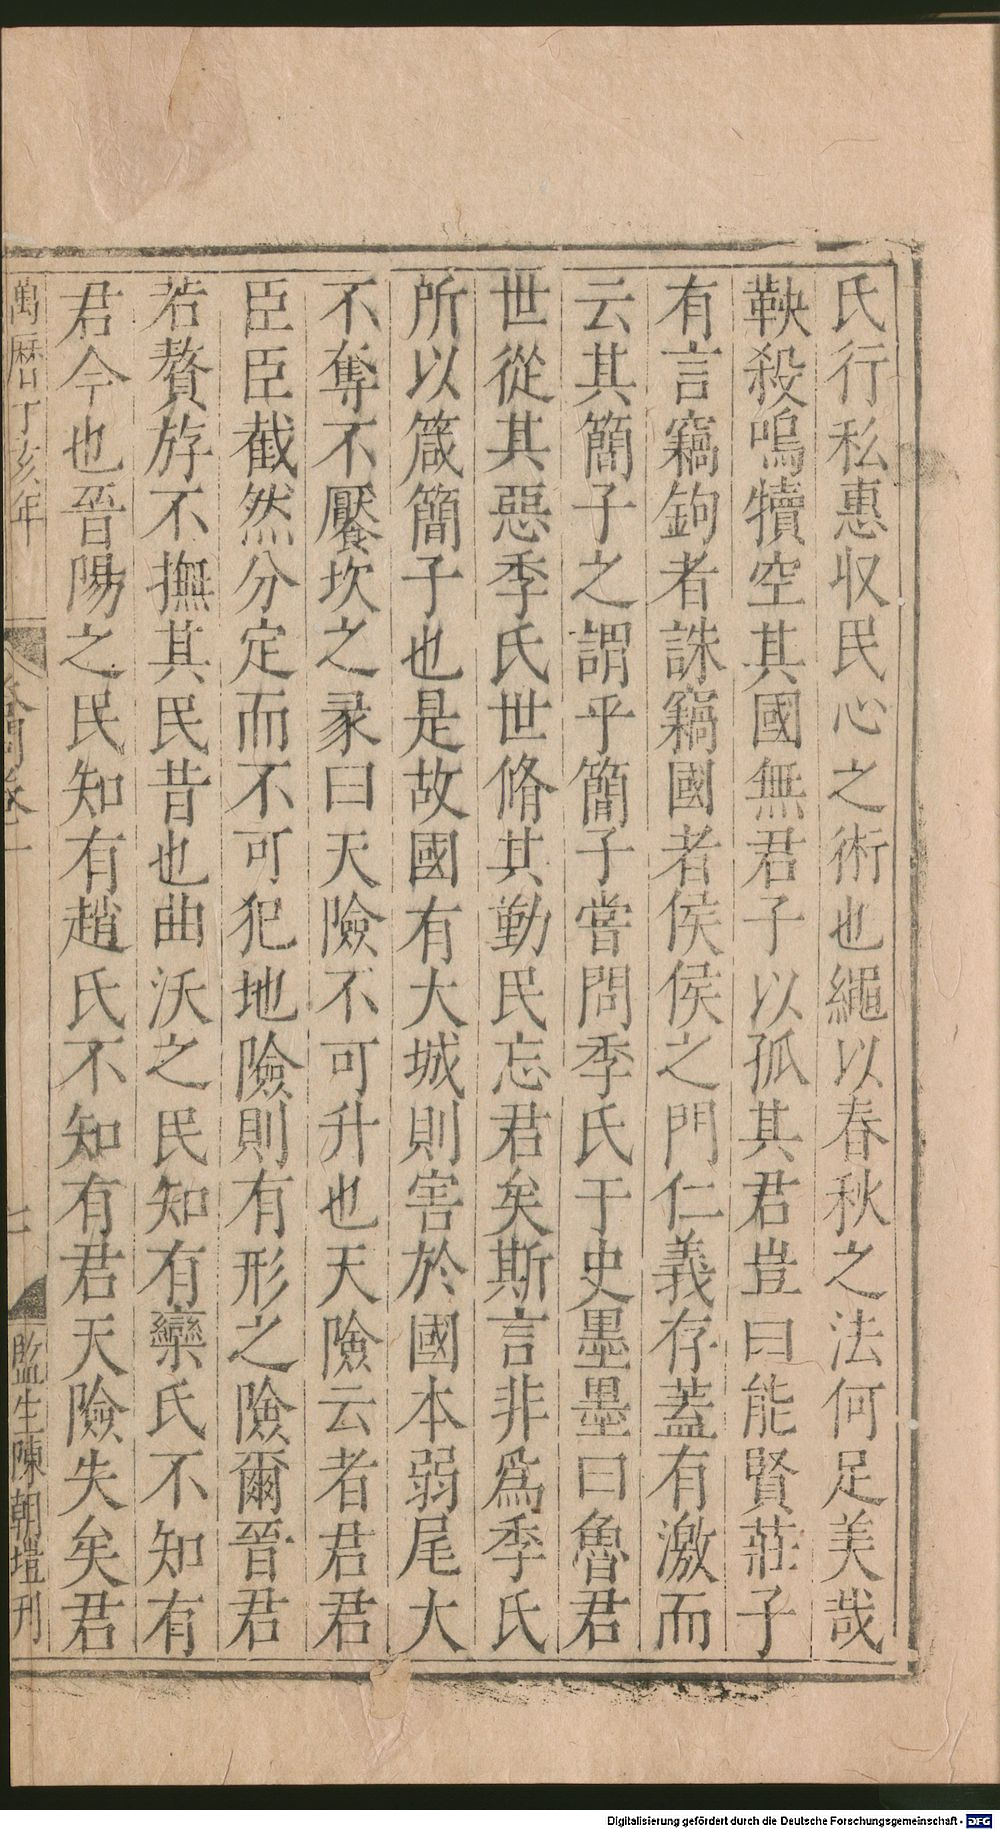 氏行私惠收民心之術也繩以春秋之法何足美哉
鞅殺鳴犢空其國無君子以孤其君豈曰能賢莊子
有言竊鉤者誅竊國者侯侯之門仁義存蓋有激而
云其簡子之謂乎簡子嘗問季氏于史墨墨曰魯君
世從其惡季氏世脩其勤民忘君矣斯言非爲季氏
所以箴簡子也是故國有大城則害於國本弱尾大
不奪不饜坎之彖曰天險不可升也天險云者君君
臣臣截然分定而不可犯地險則有形之險爾晉君
若贅斿不撫其民昔也曲沃之民知有欒氏不知有
君今也晉陽之民知有趙氏不知有君天險失矣君
萬曆丁亥年
卷一
七
監生陳朝塏刊
Digitalisierung gefördert durch die Deutsche Forschungsgemeinschaft - DFG